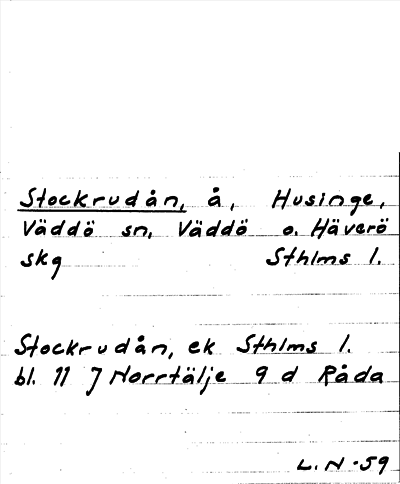 Stockrudån, å, Husinge,
Väddö sn, Väddö o. Häverö
skg Sthlms l.
Stockrudån, ek Sthlms l.
bl. 11 J Norrtälje 9 d Råda
L. N -59